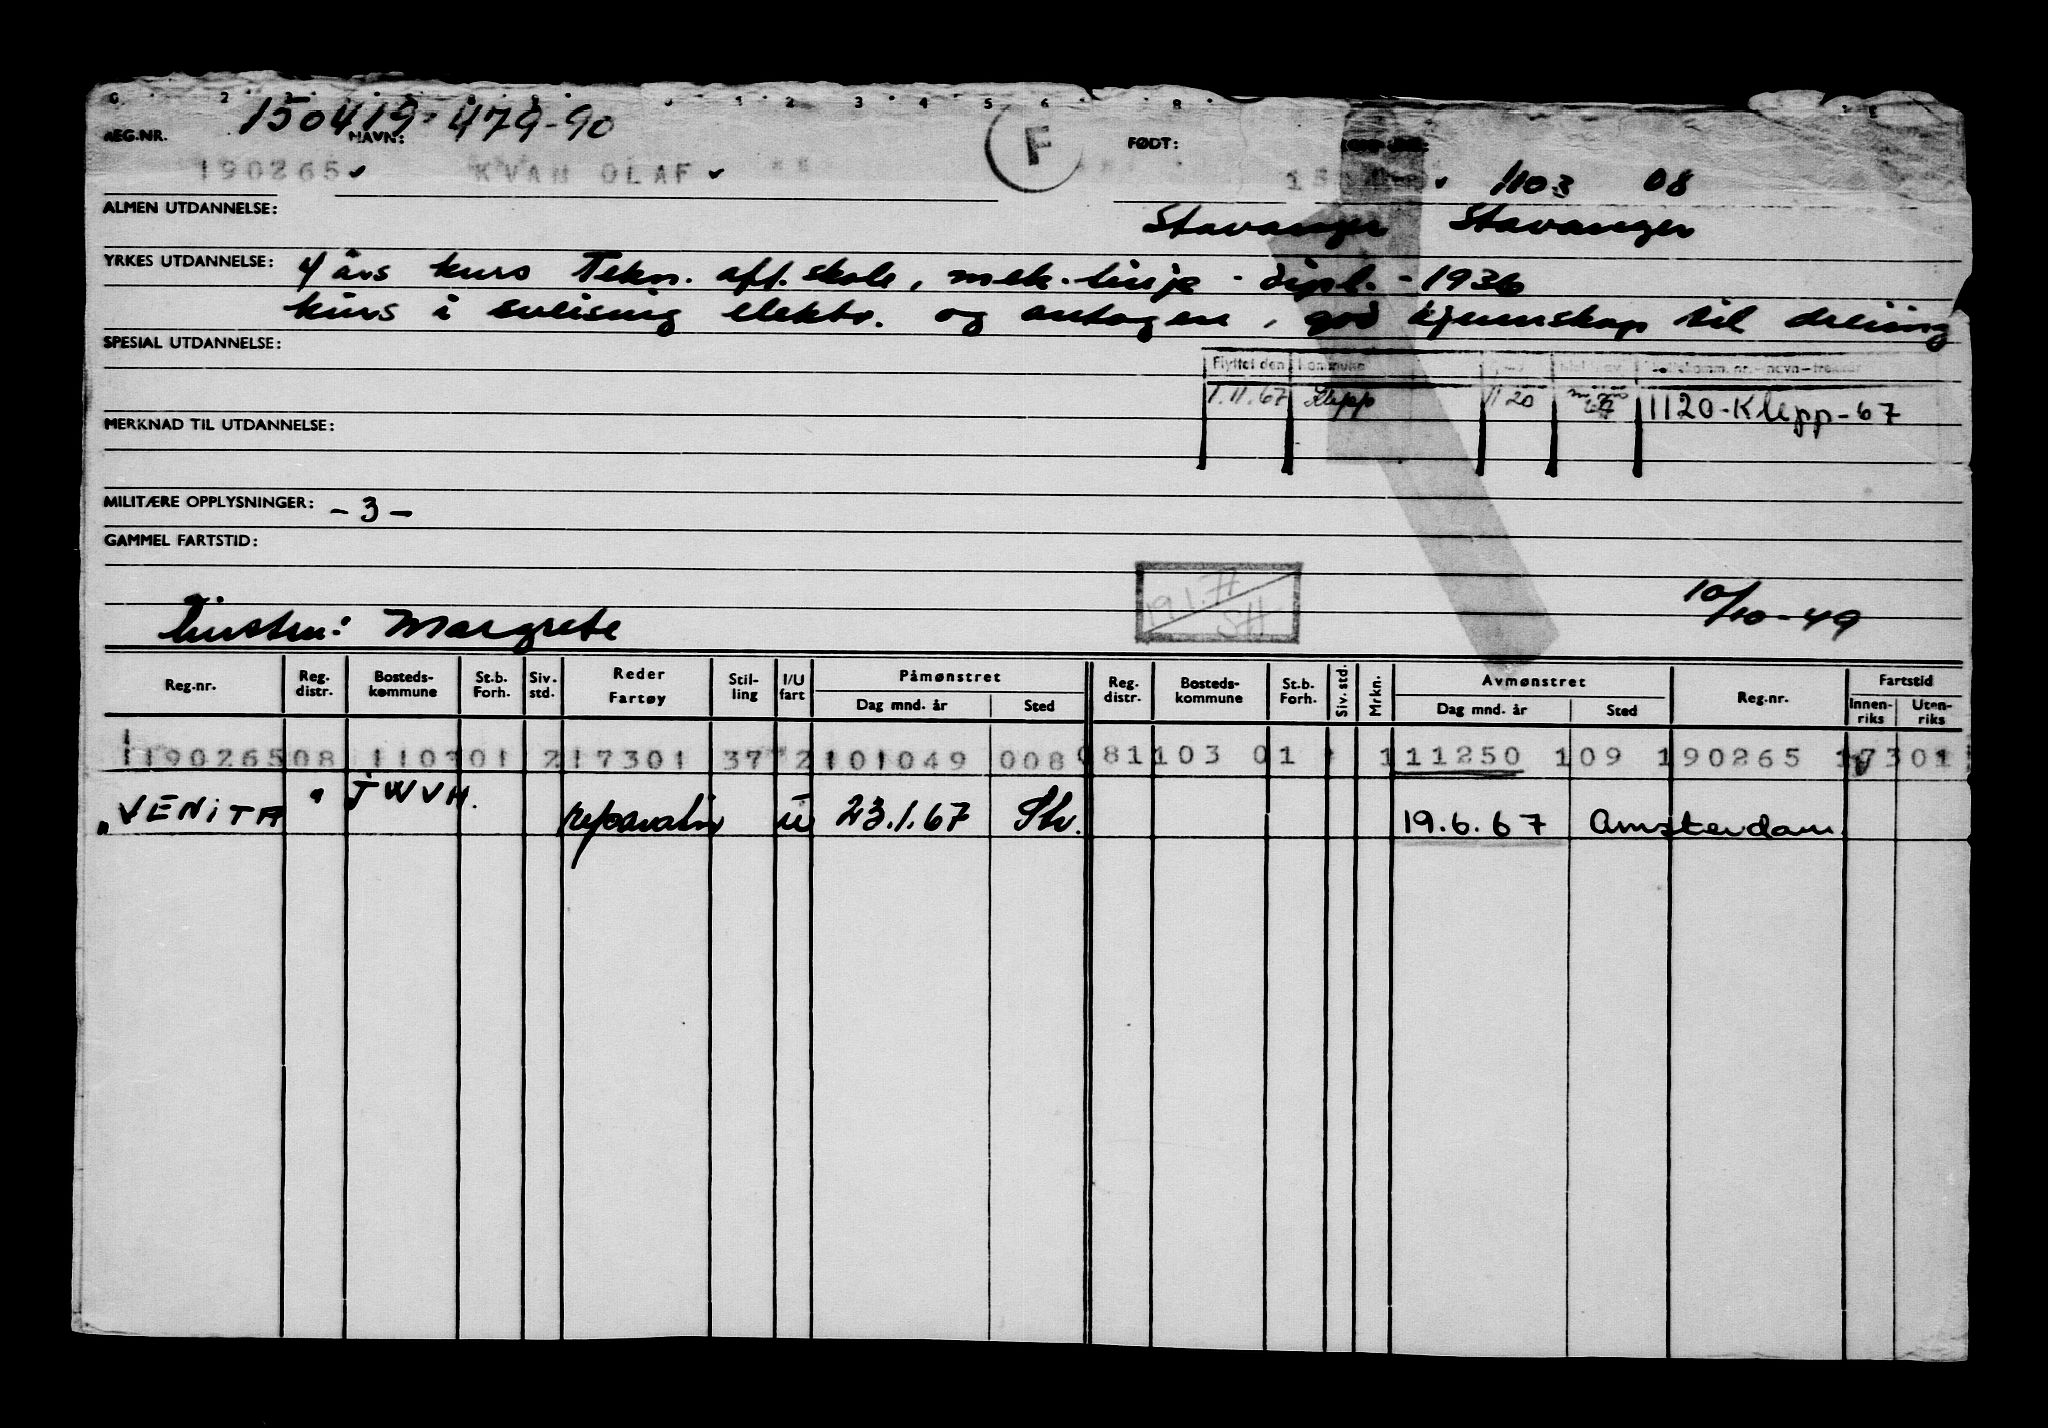 150419-479-90
REG.NR. NAVN: F FØDT:
190265 KVAN OLAF 1103 08
ALMEN UTDANNELSE: Stavanger Stavanger
YRKES UTDANNELSE: 4 års kurs Tekn. aft. skole, mek. linje - dipl. - 1936
kurs i sveising elektr. og autogen, god kjennskap til dreiing
SPESIAL UTDANNELSE:
Flyttet den Kommune
1.11.67 Klepp 1120 1120-Klepp-67
MERKNAD TIL UTDANNELSE:
MILITÆRE OPPLYSNINGER: -3-
GAMMEL FARTSTID:
19.1.71
SH
10/10-49
hustru: Margrete
Reg.nr. Reg. distr. Bosteds-kommune St.b. Forh. Siv. std. Reder Fartøy Stil-ling I/U fart Påmønstret Dag mnd. år Sted Reg. distr. Bosteds-kommune St.b. Forh. Siv. std. Mrkn. Avmønstret Dag mnd. år Sted Reg.nr. Fartstid Innen-riks Uten-riks
1190265 08 1103 01 2 17301 37 2 101049 008 081103 01 1 111250 109 190265 17301
"VENITA" JWVH. reparatør u 23.1.67 Stv. 19.6.67 Amsterdam